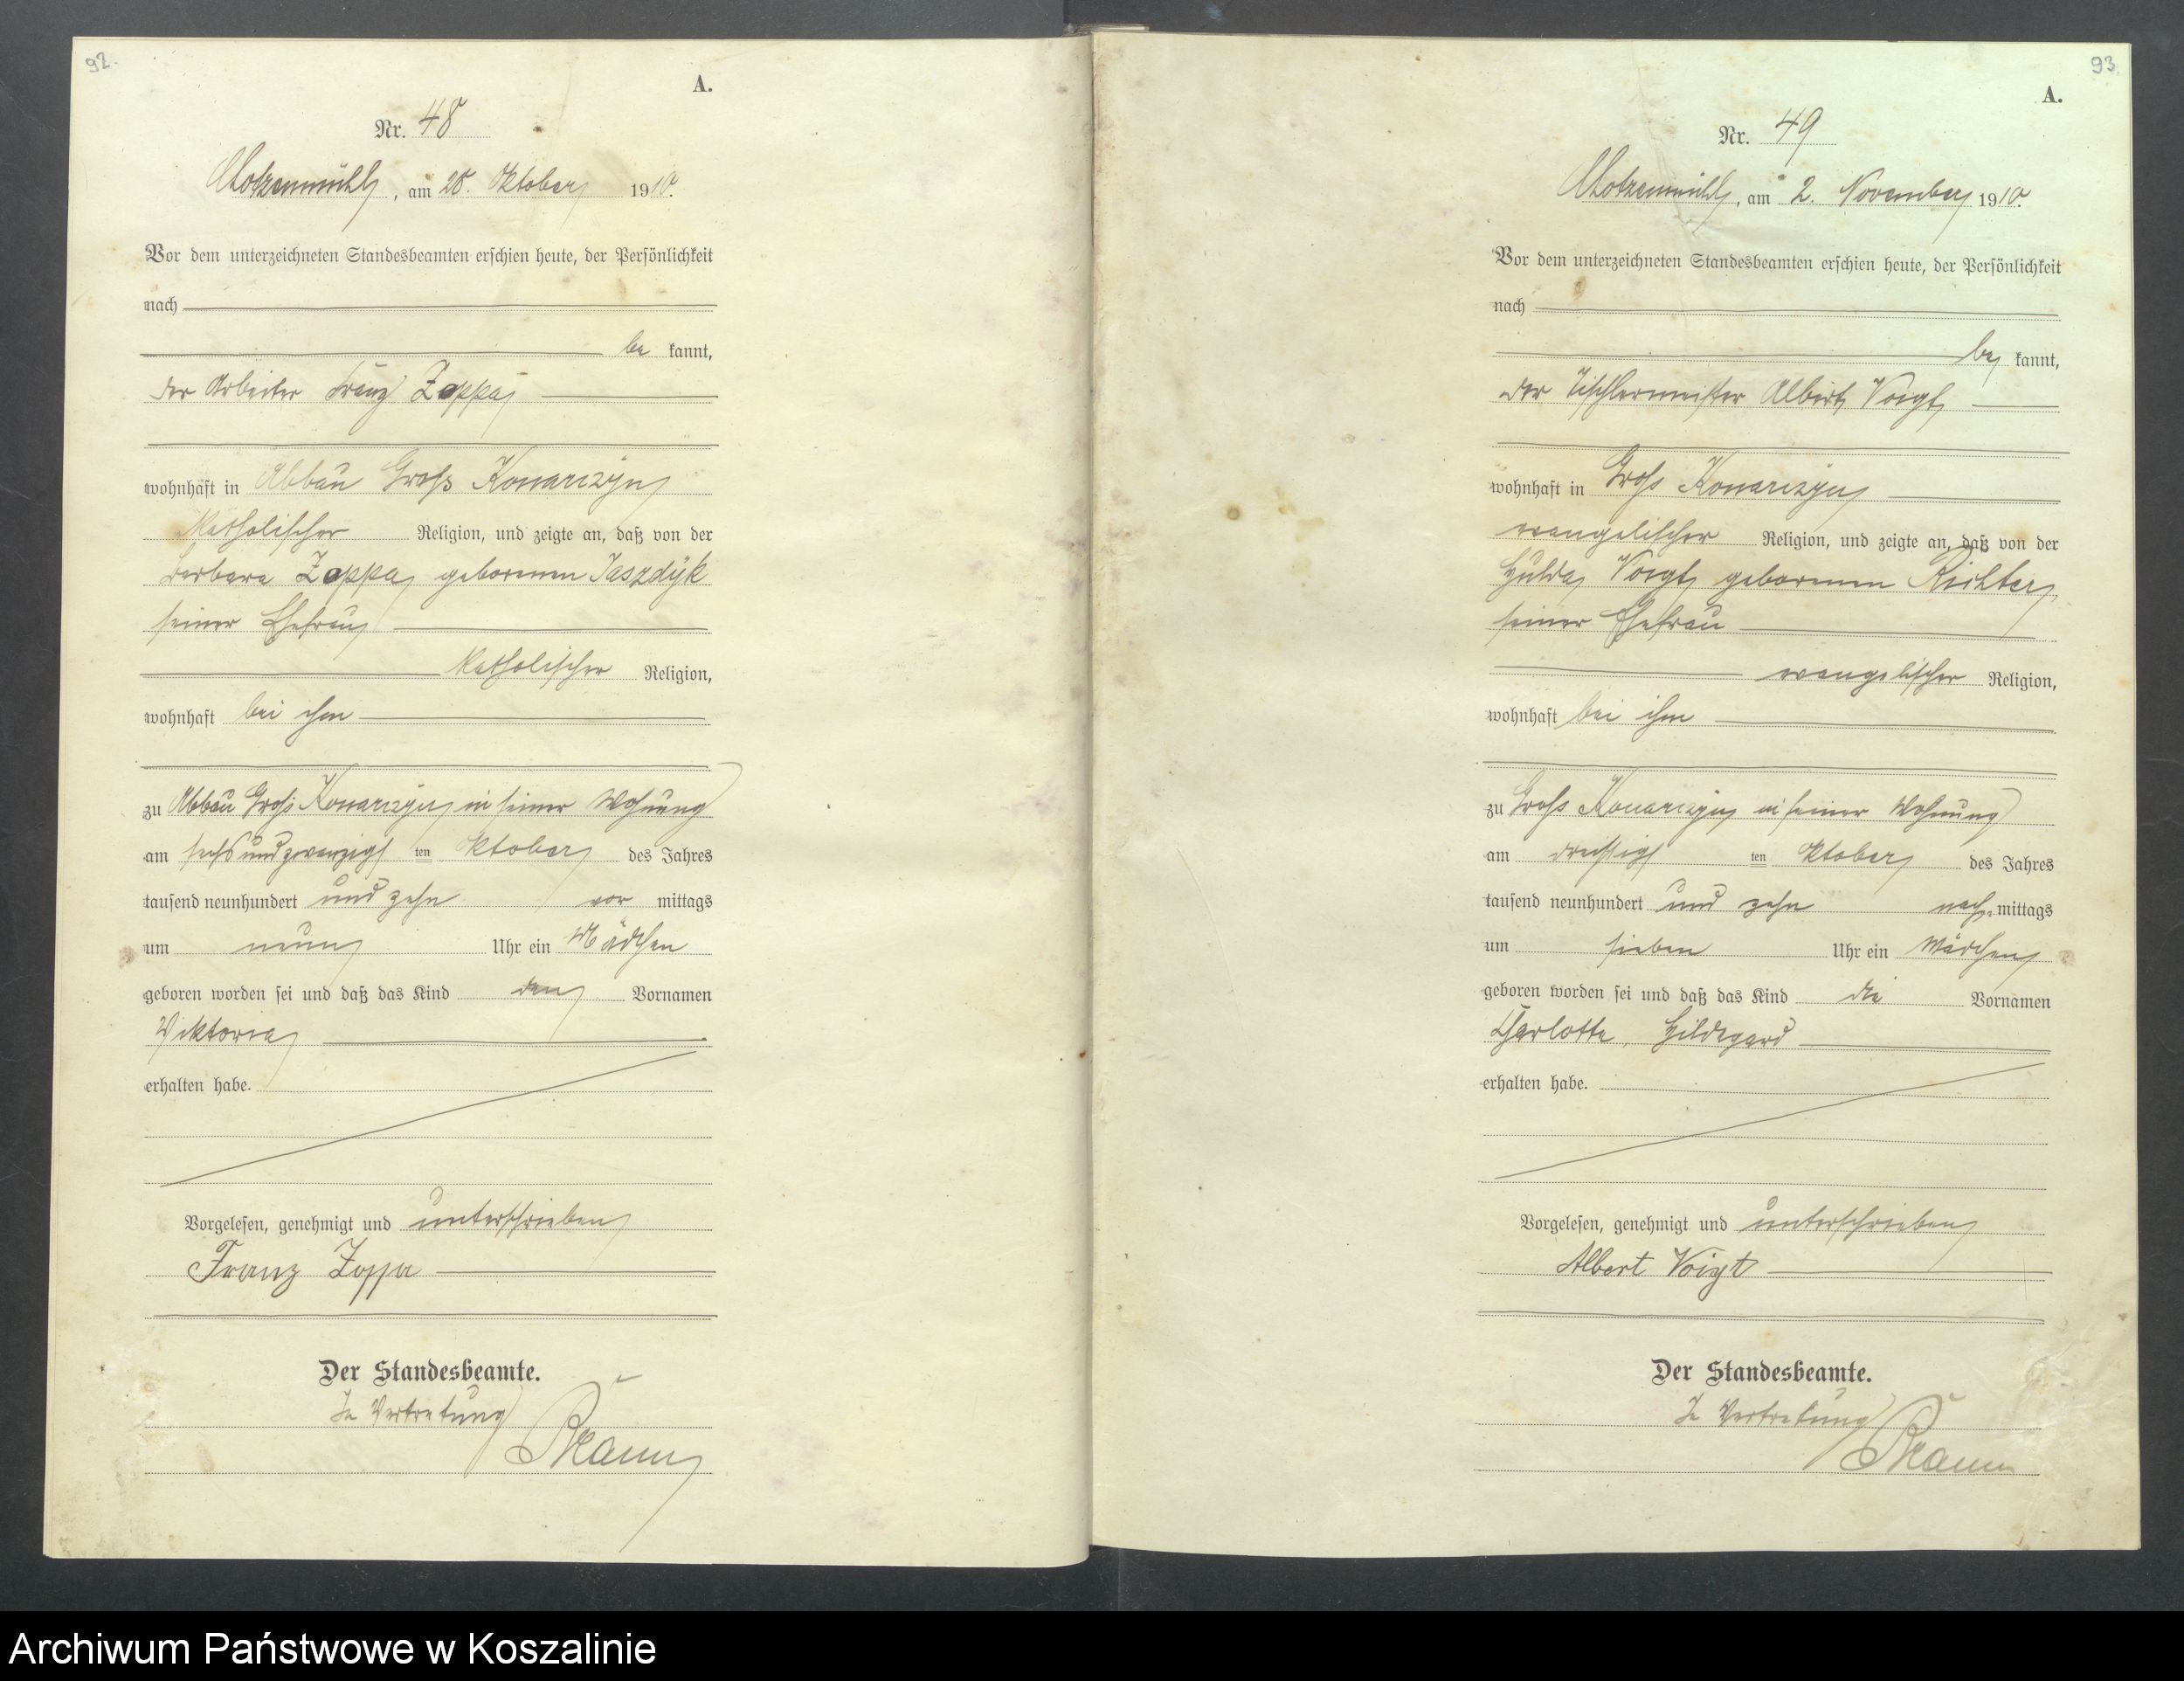 92.
A.
Nr. 48
Chotzenmühl, am 28. Oktober 1910.
Vor dem unterzeichneten Standesbeamten erschien heute, der Persönlichkeit
nach
be kannt,
der Arbeiter Franz Zoppa
wohnhaft in Abbau Groß Konarczyn
katholischer Religion, und zeigte an, daß von der
Barbara Zoppa geborenen Jaszdyk
seiner Ehefrau
katholischer Religion,
wohnhaft bei ihm
zu Abbau Groß Konarczyn in seiner Wohnung
am sechsundzwanzigs ten Oktober des Jahres
tausend neunhundert und zehn vor mittags
um neun Uhr ein Mädchen
geboren worden sei und daß das Kind den Vornamen
Viktoria
erhalten habe.
Vorgelesen, genehmigt und unterschrieben
Franz Zoppa
Der Standesbeamte.
In Vertretung
93.
A.
Nr. 49
Chotzenmühl, am 2. November 1910.
Vor dem unterzeichneten Standesbeamten erschien heute, der Persönlichkeit
nach
be kannt,
der Tischlermeister Albert Voigt
wohnhaft in Groß Konarczyn
evangelischer Religion, und zeigte an, daß von der
Hulda Voigt geborenen Richter
seiner Ehefrau
evangelischer Religion,
wohnhaft bei ihm
zu Groß Konarczyn in seiner Wohnung
am dreißigs ten Oktober des Jahres
tausend neunhundert und zehn nach mittags
um sieben Uhr ein Mädchen
geboren worden sei und daß das Kind die Vornamen
Charlotte, Hildegard
erhalten habe.
Vorgelesen, genehmigt und unterschrieben
Albert Voigt
Der Standesbeamte.
In Vertretung
Archiwum Państwowe w Koszalinie